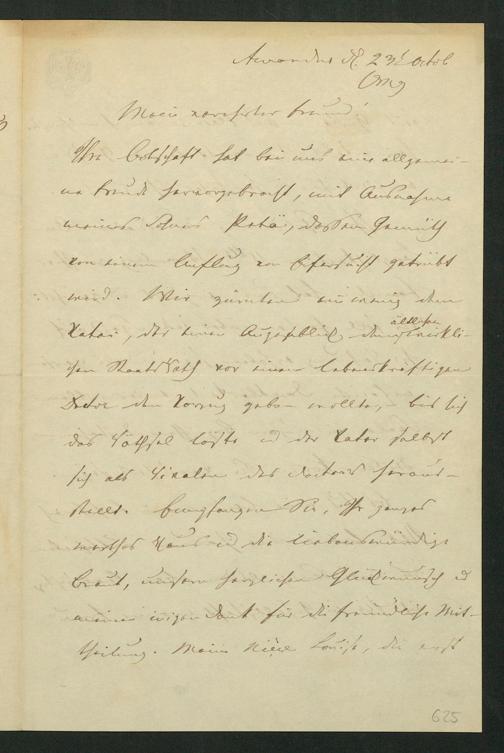 d. 23t Octob
Mein verehrter Freund!
Ihre Botschaft hat bei uns eine allgemei-
ne Freude hervorgebracht, mit Ausnahme
meines Sohnes, dessen Gemüth
von einem Anflug von Eifersucht getrübt
wird. Wir zürnten ein wenig dem
Vater, der einen Augenblick dem ältlichen
Staatsrath vor einem lebenskräftigen
Doctor den Vorzug geben wollte, bis sich
das Räthsel löste u der Vater selbst
sich als Rivalen des Doctors heraus-
stellte. Empfangen Sie, Ihr ganzes
werthes Haus u die liebenswürdige
Braut, unsern herzlichen Glückwunsch u
meinen innigen Dank für die freundliche Mit-
theilung. Meine Niece Louise, die erst
625